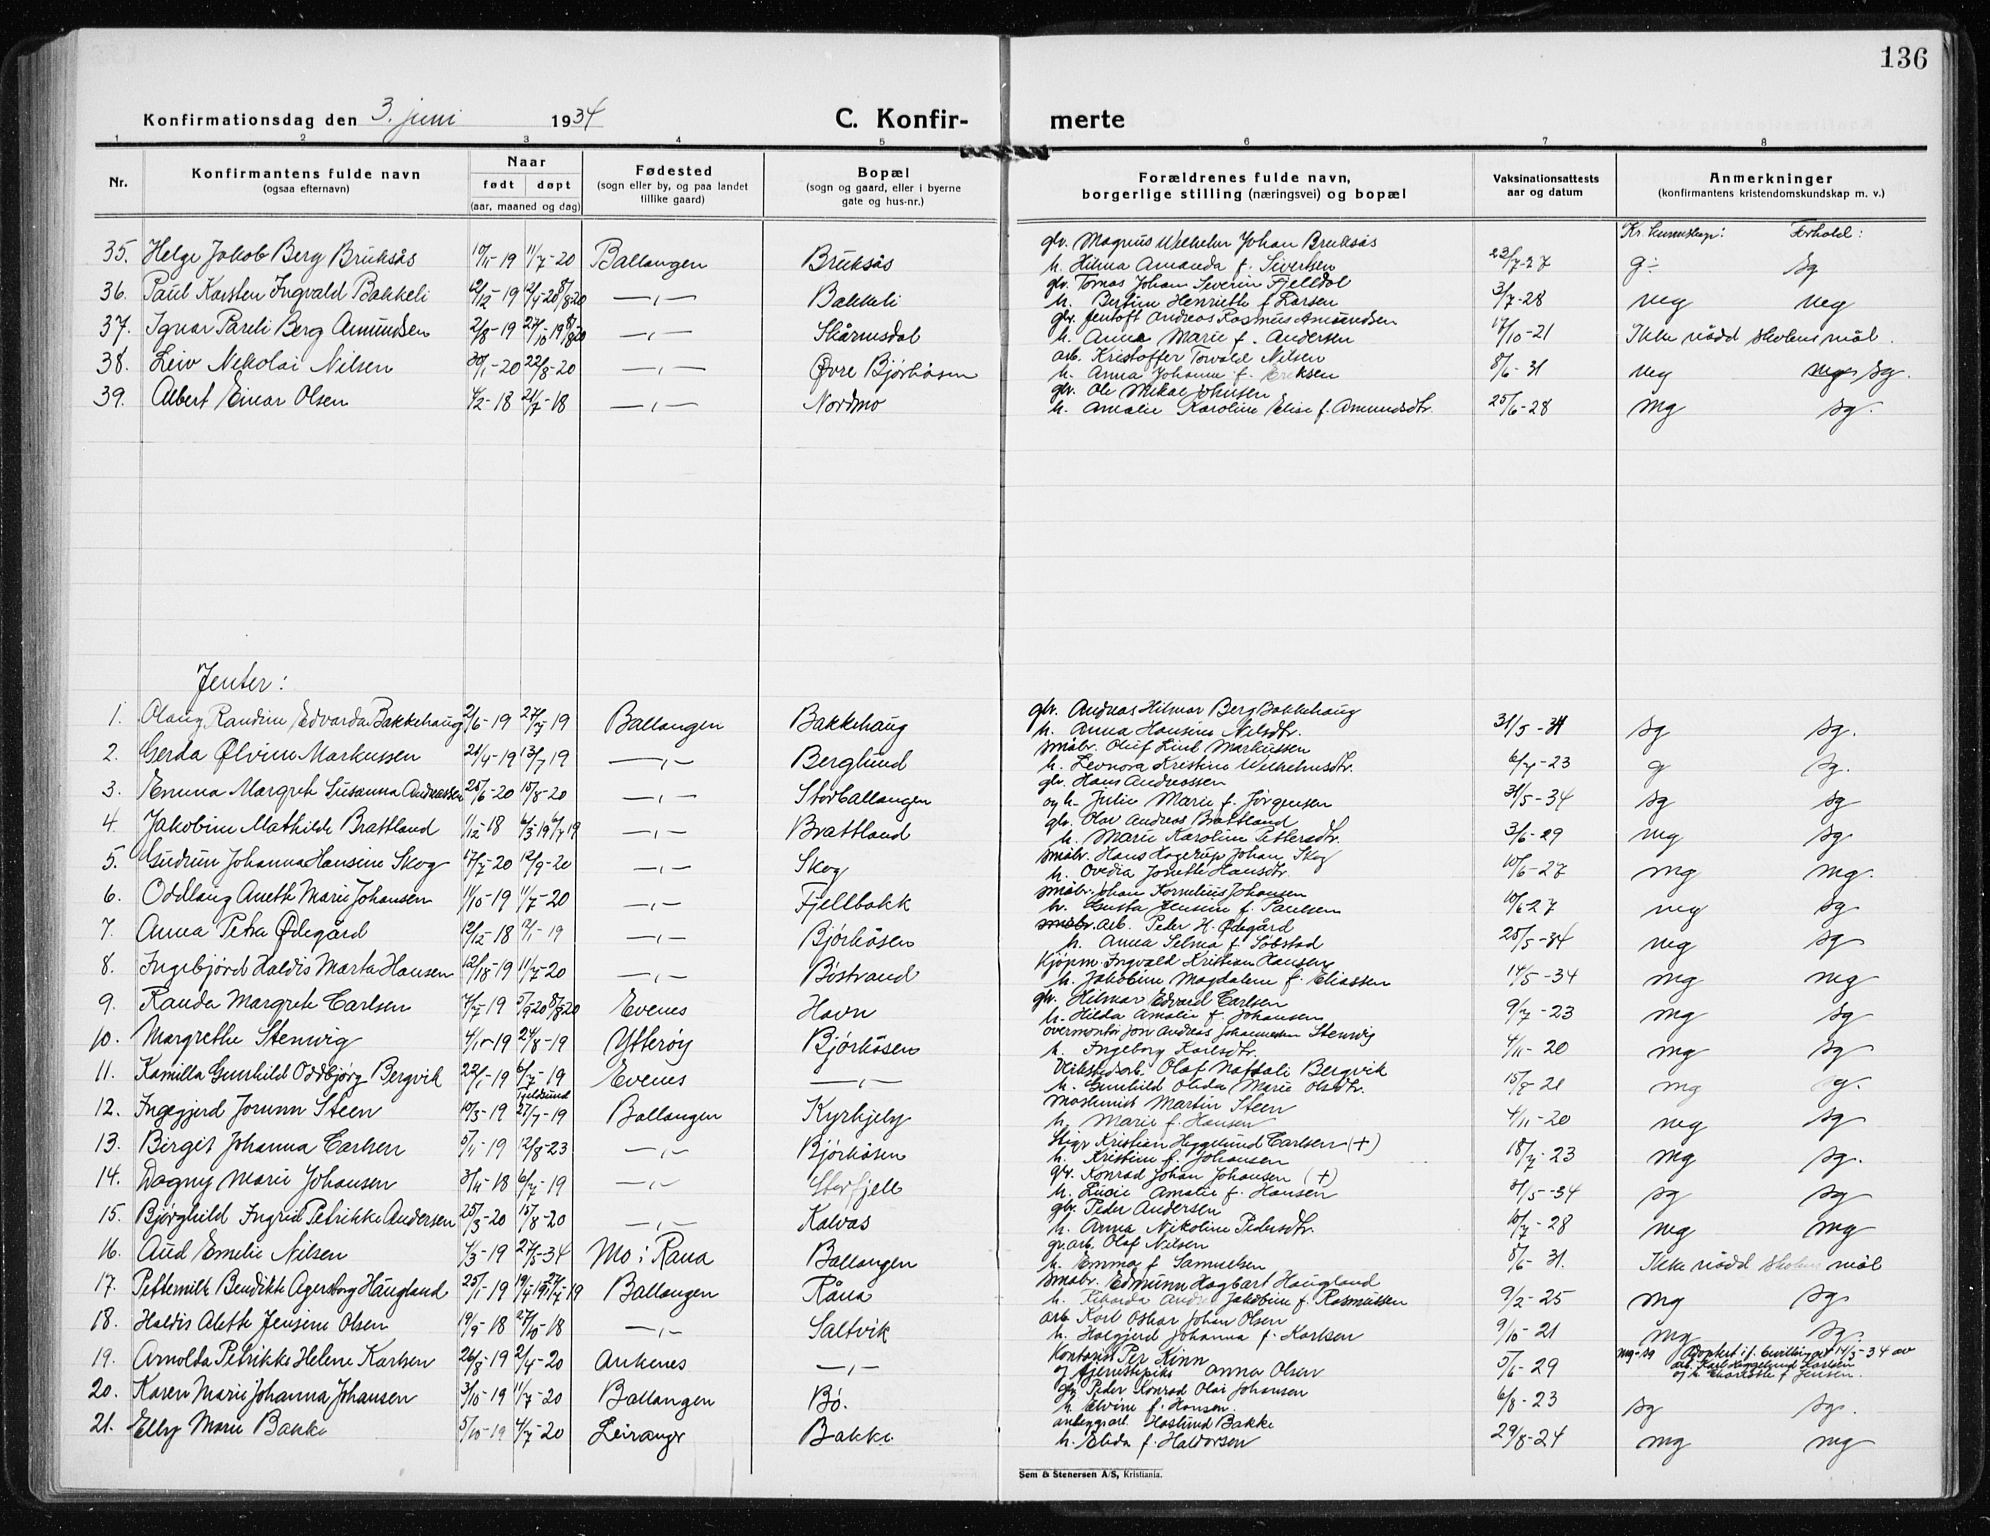 136
Konfirmationsdag den 3. juni 1934 C. Konfir- merte
1 2 3 4 5 6 7 8
Nr. Konfirmantens fulde navn (ogsaa efternavn) Naar født døpt (aar, maaned og dag) Fødested (sogn eller by, og paa landet tillike gaard) Bopæl (sogn og gaard, eller i byerne gate og hus-nr.) Forældrenes fulde navn, borgerlige stilling (næringsvei) og bopæl Vaksinationsattests aar og datum Anmerkninger (konfirmantens kristendomskundskap m. v.)
Kr. kunnskap: Forhold:
35. Helge Jakob Berg Bruksås 10/11-19 11/7-20 Ballangen Bruksås gbr. Magnus Wilhelm Johan Bruksås h. Hilma Amanda f. Sivertsen 23/7-27 g÷ sg
36. Paul Karsten Ingvald Bakkeli 12/12-19 12/4-20 8/8-20 —,,— Bakkeli gbr. Tomas Johan Severin Fjelldal h. Bertine Henriette f. Larsen 3/7-28 mg mg
37. Ignar Pareli Berg Amundsen 2/8-19 27/10-19 8/8-20 —,,— Skårnesdal gbr. Jentoft Andreas Rasmus Amundsen h. Anna Marie f. Andersen 17/10-21 Ikke nådd skolens mål.
38. Leiv Nikolai Nilsen 30/1-20 22/8-20 —,,— Øvre Bjørkåsen arb. Kristoffer Torvald Nilsen h. Anna Johanna f. Eriksen 8/6-31 mg sg.
39. Albert Einar Olsen 4/2-18 21/7-18 —,,— Nordmo gbr. Ole Mikal Johnsen h. Amalie Karoline Elise f. Amundsdtr. 25/6-28 mg sg.
Jenter:
1. Olaug Randine Edvarda Bakkehaug 2/6-19 27/7-19 Ballangen Bakkehaug gbr. Andreas Hilmar Berg Bakkehaug h. Anna Hansine Nilsdtr. 31/5-34 sg sg.
2. Gerda Ølvine Markussen 21/4-19 13/7-19 —,,— Berglund småbr. Oluf Lind Markussen h. Leonora Kristine Wilhelmsdtr. 6/7-23 g sg.
3. Emma Margrete Susanna Andreassen 25/6-20 15/8-20 —,,— Storballangen gbr. Hans Andreassen og h. Julie Marie f. Jørgensen 31/5-34 sg sg
4. Jakobine Mathilde Brattland 1/12-18 6/3-19 6/7-19 —,,— Brattland gbr. Olav Andreas Brattland h. Marie Karoline Pettersdtr. 3/6-29 mg sg
5. Gudrun Johanna Hansine Skog 17/7-20 12/9-20 —,,— Skog småbr. Hans Hagerup Johan Skog h. Ovedia Jonette Hansdtr. 10/6-27 mg mg.
6. Oddlaug Anette Marie Johansen 11/10-19 11/7-20 —,,— Fjellbakk småbr. Johan Kornelius Johansen h. Gusta Jensine f. Paulsen 10/6-27 mg sg
7. Anna Petra Ødegård 12/12-18 12/1-19 —,,— Bjørkåsen arb. Peder H. Ødegård h. Anna Selma f. Sobstad 25/5-34 mg sg
8. Ingebjørd Haldis Marta Hansen 12/10-19 11/7-20 —,,— Bøstrand kjøpm. Ingvald Kristian Hansen h. Jakobine Magdalene f. Eliassen 14/5-34 mg mg
9. Randa Margrete Carlsen 4/7-19 5/9-20 8/8-20 Evenes Havn gbr. Hilmar Edvard Carlsen h. Hilda Amalie f. Johansen 9/7-23 mg sg
10. Margrethe Stenvig 4/10-19 24/8-19 Ytterøy Bjørkåsen overmontør Jon Andreas Johannessen Stenvig h. Ingeborg Karlsdtr. 4/11-20 mg sg
11. Kamilla Gunhild Oddbjørg Bergvik 22/1-19 6/7-19 Evenes —,,— Verkstedsarb. Olaf Naftali Bergvik h. Gunhild Olida Marie Olsdtr. 15/8-21 mg sg.
Tjeldsund
12. Ingegjerd Jorunn Steen 10/3-19 27/7-19 Ballangen Kyrkjeby maskinist Martin Steen h. Marie f. Hansen 4/11-20 mg sg
13. Birgit Johanna Carlsen 5/11-19 12/8-23 —,,— Bjørkåsen Stigr Kristian Heggelund Carlsen (+) h. Kristine f. Johansen 18/7-23 mg sg.
14. Dagny Marie Johansen 3/11-18 6/7-19 —,,— Storfjell gbr. Konrad Johan Johansen (+) h. Lucie Amalie f. Hansen 31/5-34 sg sg
15. Bjørghild Ingrid Petrikke Andersen 25/3-20 15/8-20 —,,— Kalvås gbr. Peder Andersen h. Anna Nikoline Pedersdtr. 10/7-28 mg mg
16. Aud Emelie Nilsen 4/3-19 27/5-34 Mo i Rana Ballangen gr.arb. Olaf Nilsen h. Emma f. Samuelsen 8/6-31. Ikke nådd skolens mål
17. Pettemilk Bendikte Agersborg Haugland 25/1-19 19/4-19 27/7-19 Ballangen Råna småbr. Edmunn Hagbart Haugland h. Rikarda Jakobine f. Rasmussen 9/2-25 mg sg
18. Haldis Alette Jensine Olsen 19/9-18 27/10-18 —,,— Saltvik arb. Karl Oskar Johan Olsen h. Halgjerd Johanna f. Karlsen 9/10-21 mg sg.
19. Arnolda Petrikke Helene Karlsen 26/8-19 2/4-20 Ankenes —,,— Kontorist Per Kinn og tjenestepike Anna Olsen 5/6-29 mg-sg Adoptert if. bevilling av 14/3-34 av arb. Karl Heggelund Karlsen og h. Charlotte f. Jensen.
20. Karen Marie Johanna Johansen 3/10-19 11/7-20 Ballangen Bø. gbr. Peder Konrad Olai Johansen h. Elvine f. Hansen. 6/8-23 sg sg.
21. Elly Marie Bakke 5/10-19 4/7-20 Leiranger Bakke anleggsarb. Haslund Bakke h. Elida f. Haldorsen 29/8-24 mg mg
Sem & Stenersen A/S, Kristiania.